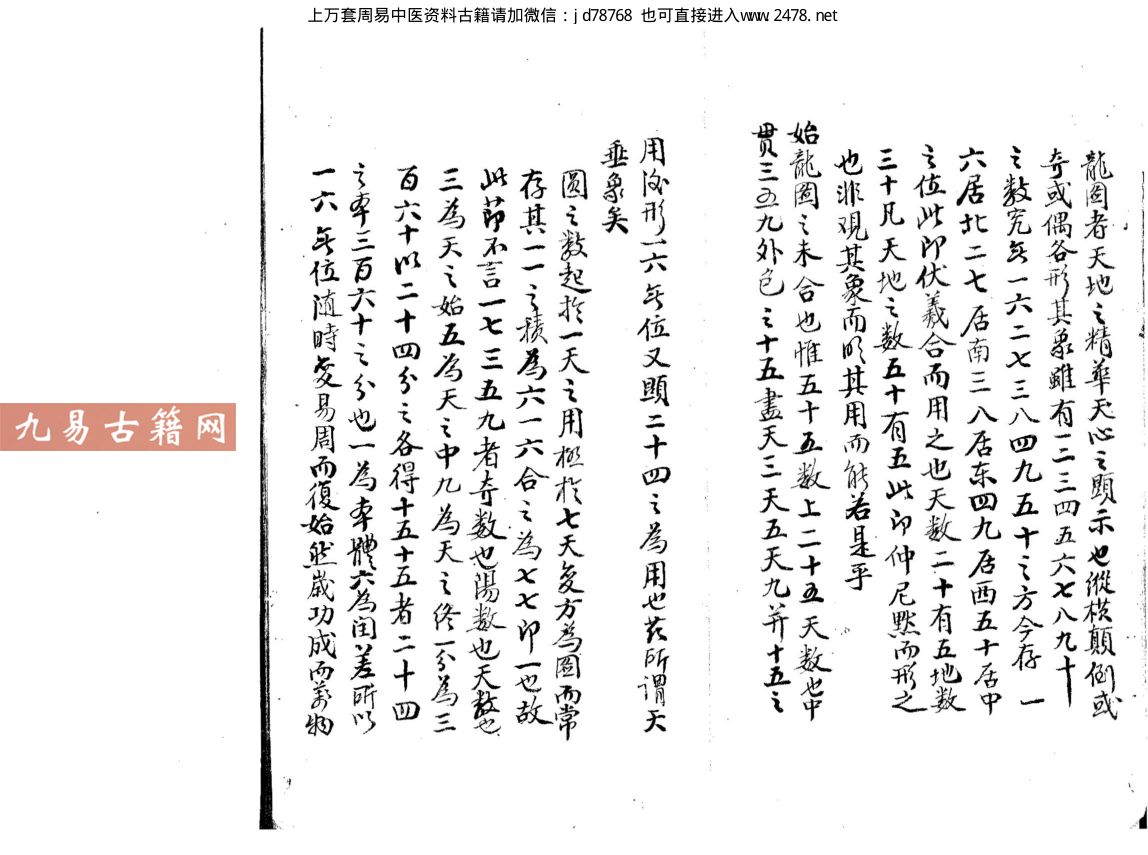 上万套周易中医资料古籍请加微信：jd78768 也可直接进入www.2478.net
龍圖者天地之精華天心之顯示也縱横顛倒或
奇或偶各形其象雖有一二三四五六七八九十
之數究無一六二七三八四九五十之方今存一
六居北二七居南三八居东四九居西五十居中
之位此即伏羲合而用之也天數二十有五地數
三十凡天地之数五十有五此即仲尼默而形之
也非观其象而明其用而能若是乎
始龍圖之未合也惟五十五数上二十五天数也中
贯三五九外包之十五盡天三天五天九并十五之
用後形一六無位又顯二十四之為用也兹所謂天
垂象矣
圆之数起於一天之用極於七天変方為圆而常
存其一一之積為六一六合之為七七即一也故
此節不言一七三五九者奇数也陽数也天数也
三為天之始五為天之中九為天之终一分為三
百六十以二十四分之各得十五十五者二十四
之本三百六十之分也一為本體六為闰差所以
一六無位随時変易周而復始然歲功成而萬物
九易古籍网